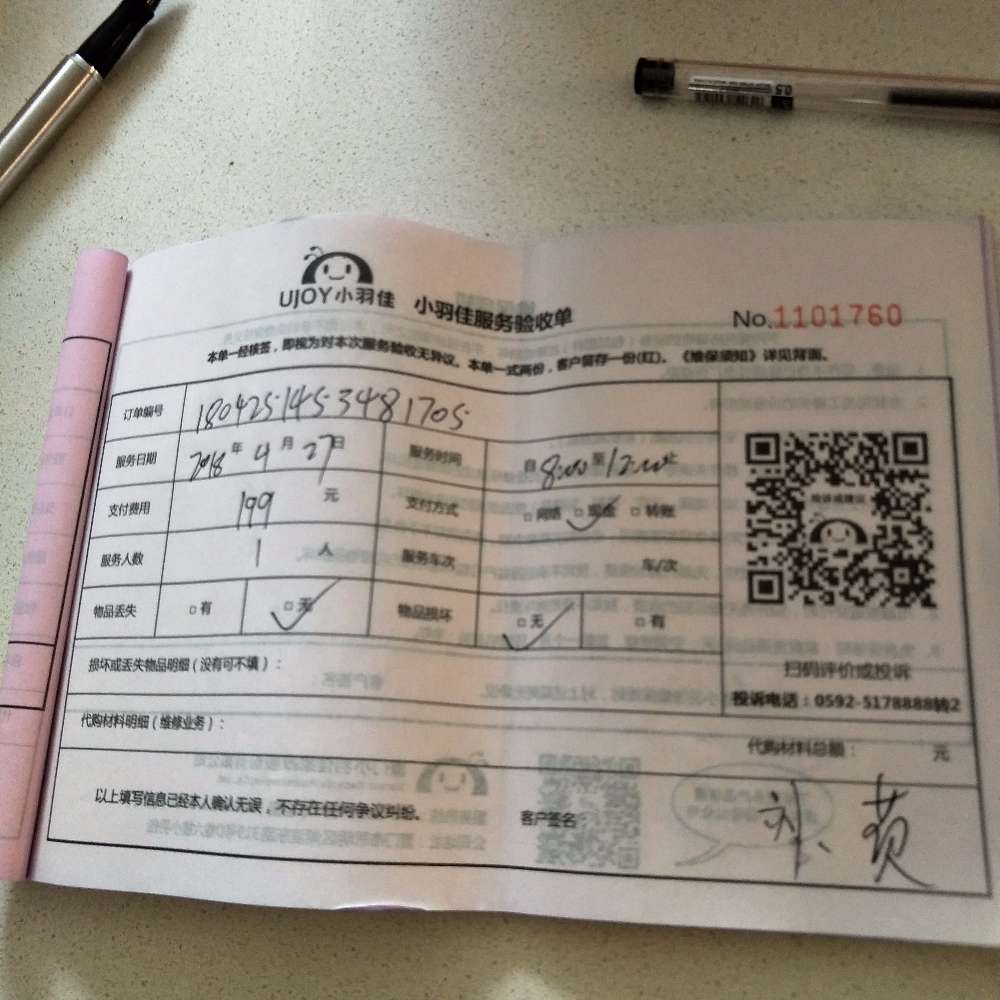 UJOY小羽佳 小羽佳服务验收单 No.1101760
本单一经核签，即视为对本次服务验收无异议。本单一式两份，客户留存一份(红)。《维保须知》详见背面。
订单编号 180425145348 1705
服务日期 2018年4月27日 服务时间 自8:00至12:00止
支付费用 199 元 支付方式 □网络 □现金 □转账
服务人数 1 人 服务车次 车/次
物品丢失 □有 □无 物品损坏 □无 □有
扫码评价或投诉
投诉电话：0592-5178888转2
损坏或丢失物品明细（没有可不填）：
代购材料明细（维修业务）：
代购材料总额： 元
以上填写信息已经本人确认无误，不存在任何争议纠纷。 客户签名
0.5